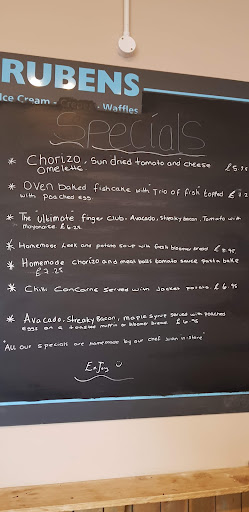 RUBENS
Ice Cream · · Waffles
Specials
* Chorizo, sun dried tomato and cheese £5.95
omelette
* Oven baked fishcake with "Trio of fish" topped
with poached egg.
* The Ultimate finger Club. Avocado, Streaky bacon, Tomato with
Mayonaise £6.25
* Homemade Leek and potato soup with fresh bloomer bread
* Homemade chorizo and meat balls tomato sauce pasta bake
£7.25
* Chilli Concarne served with Jacket potato. £6.95
* Avacado, Streaky Bacon, maple syrup served with poached
eggs on a toasted muffin or bloomer bread £6.95
"All our specials are homemade by our chef in store"
Enjoy